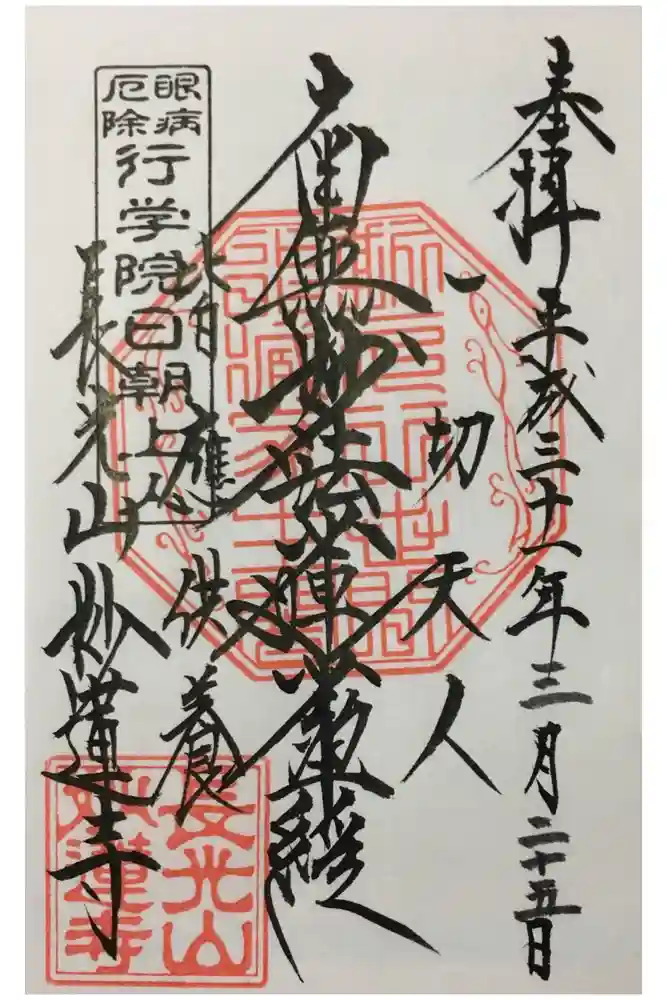 奉拝
平成三十一年三月二十五日
一切天人
南無妙法蓮華経
皆應供養
長光山
妙蓮寺
眼病
厄除
行学院日朝上人
長光山
妙蓮寺